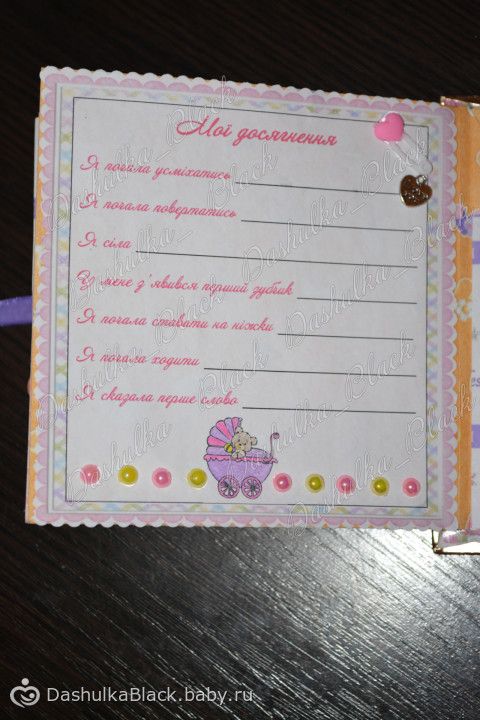 Мої досягнення
Я почала усміхатись
Я почала повертатись
Я сіла
У мене з'явився перший зубчик
Я почала ставати на ніжки
Я почала ходити
Я сказала перше слово
Dashulka_Black
DashulkaBlack.baby.ru